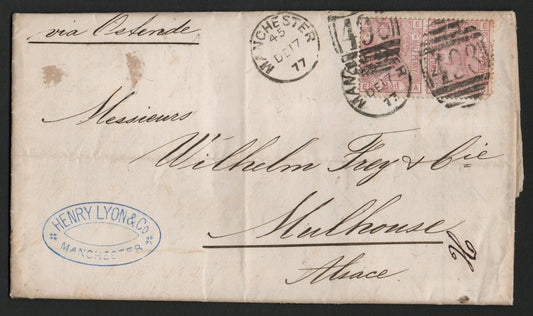 via Ostende
MANCHESTER
45
DE 17
77
498
MANCHESTER
DE 17
77
498
Messieurs
Wilhelm Frey & Cie
Mulhouse
Alsace
HENRY LYON & Co
MANCHESTER